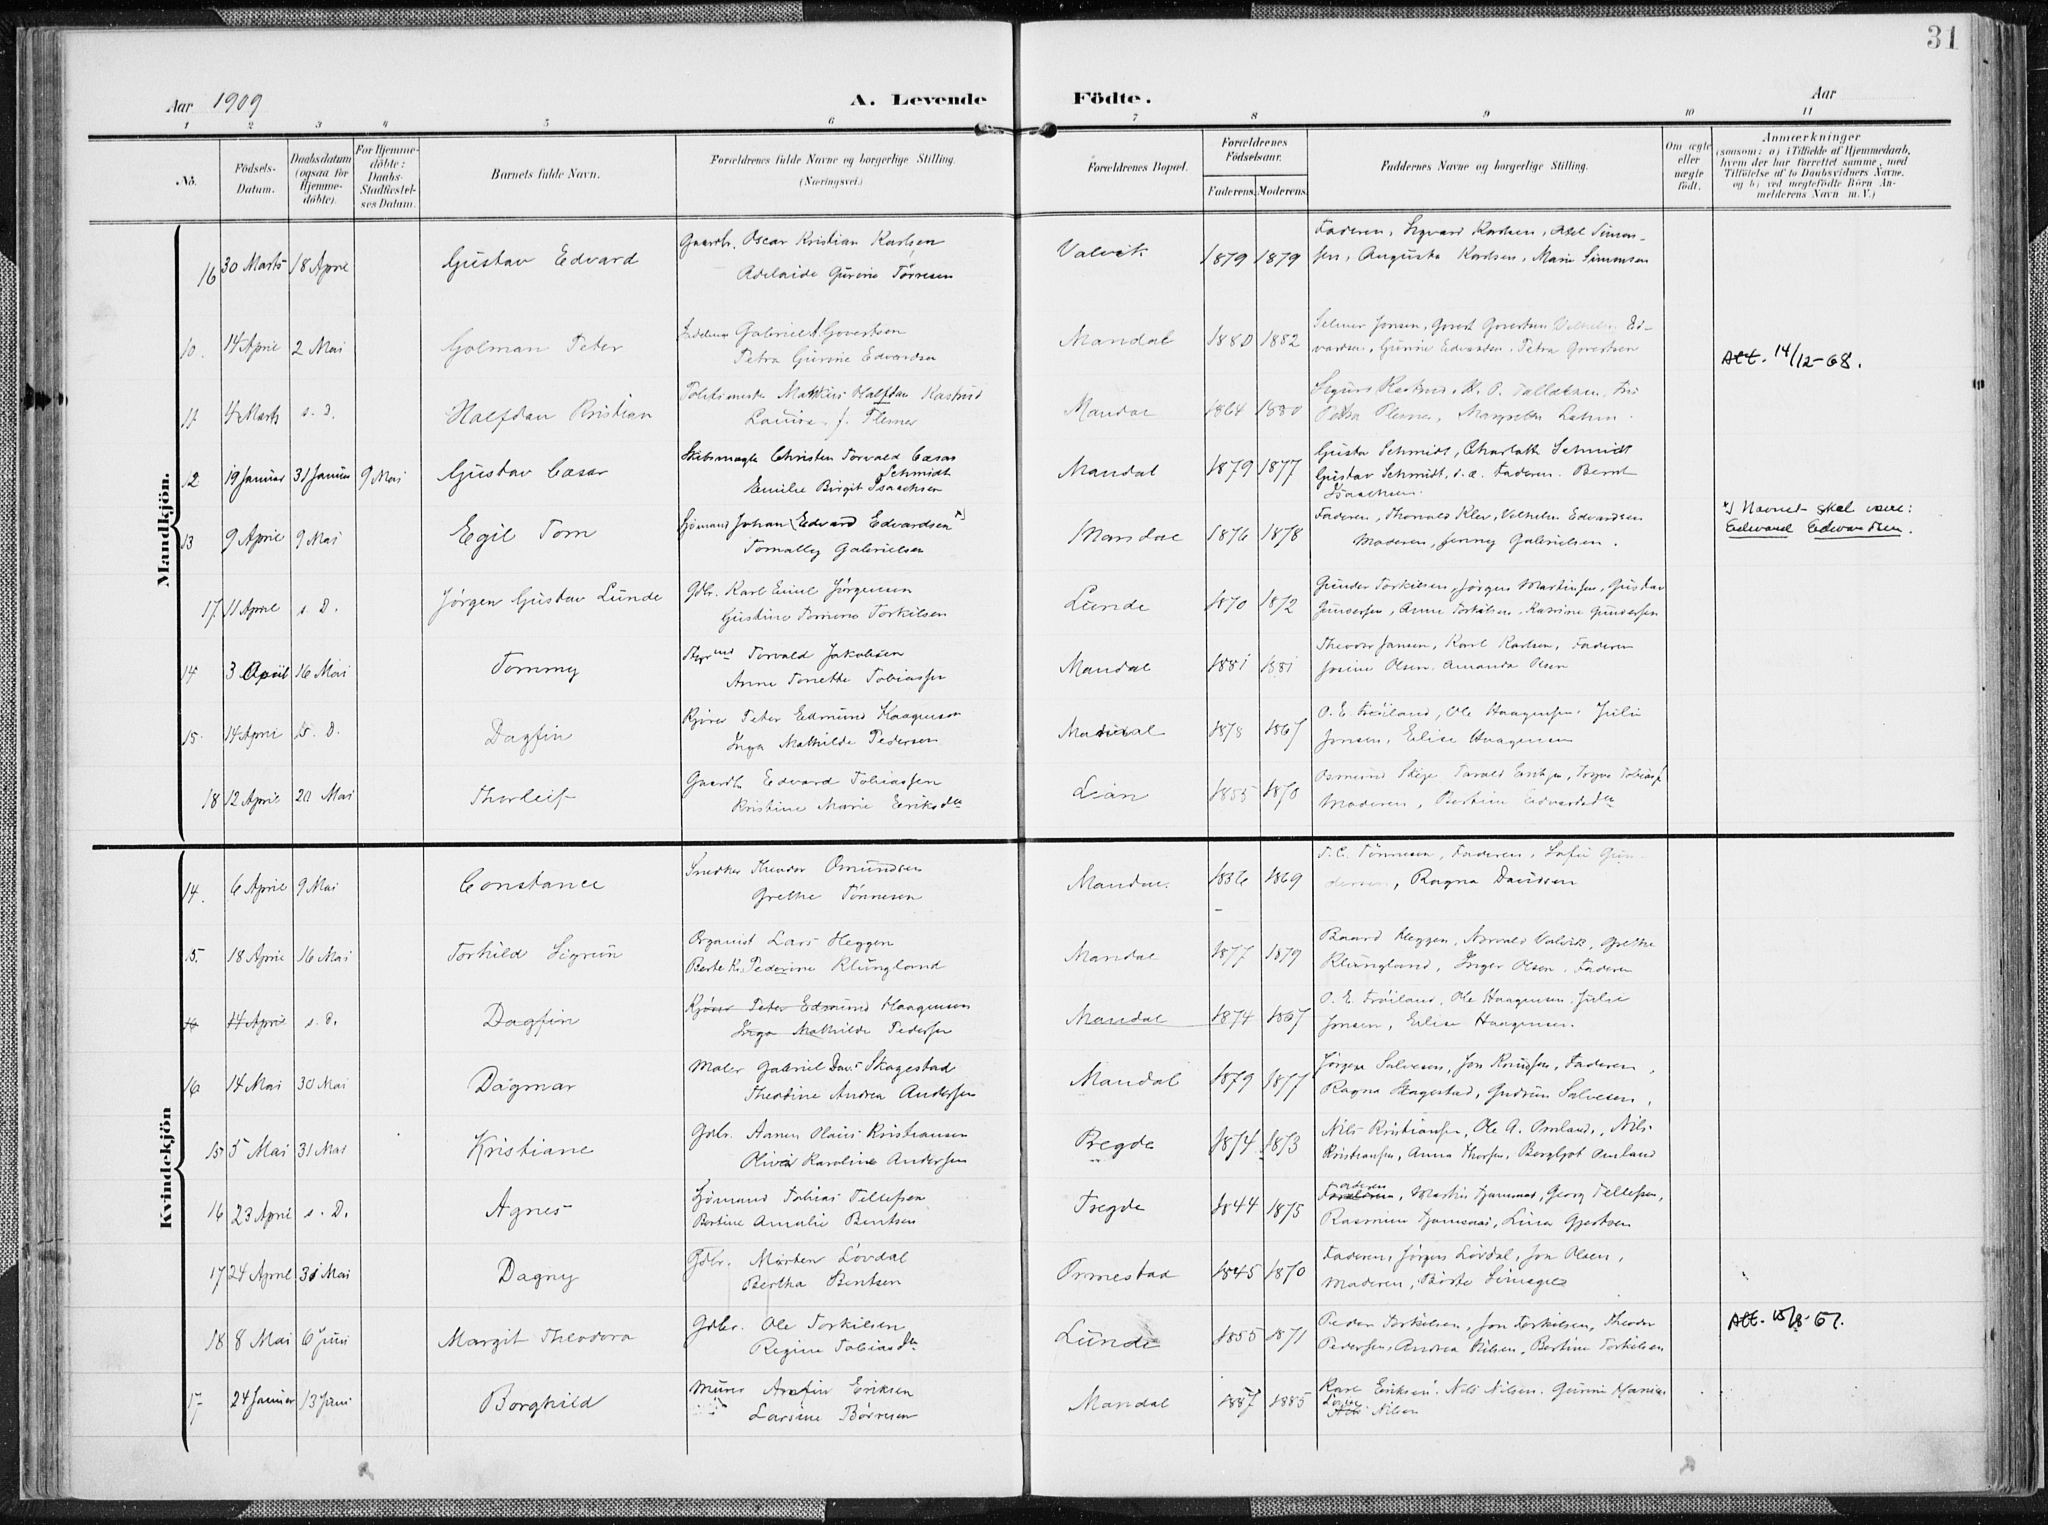 31
Aar 1909
A. Levende Födte.
Aar
1 2 3 4 5 6 7 8 9 10 11
No.
Födsels-Datum.
Daabsdatum (ogsaa for Hjemme-döbte).
For Hjemme-döbte: Daabs-Stadfæstel-ses Datum.
Barnets fulde Navn.
Forældrenes fulde Navne og borgerlige Stilling. (Næringsvei.)
Forældrenes Bopæl.
Forældrenes Födselsaar.
Faderens. Moderens.
Faddernes Navne og borgerlige Stilling.
Om ægte eller uægte födt.
Anmærkninger
(saasom: a) i Tilfælde af Hjemmedaab,
hvem der har forrettet samme, med
Tilföielse af to Daabsvidners Navne.
og b) ved uegtefödte Börn An-
melderens Navn m. V.)
Mandkjön.
16 30 Marts 18 April Gustav Edvard Gaardbr. Oscar Kristian Karlsen Valvik 1879 1879 Faderen, Sigvard Karlsen, Axel Simon-
Adelaide Gurine Tørresen sen, Augusta Karlsen, Marie Simonsen
10. 14 April 2 Mai Golman Peter Gabriel Govertsen Mandal 1880 1882 Selmer Jonsen, Govert Govertsen Vilhelm Ed-
Petra Gurine Edvardsen vardsen, Gurine Edvardsen, Petra Govertsen
Att. 14/12-68.
11 4 Marts s. D. Halfdan Kristian Halfdan Kastrud Mandal 1864 1880
Louise f. Flemer Petra Flemer, Margrethe
12 19 Januar 31 Januar 9 Mai Gustav Cæsar Christen Torvald Cæsar Schmidt Mandal 1879 1877 Gusta Schmidt, Charlotte Schmidt
Emilie Birgit Isaachsen Gustav Schmidt, s. a. Faderen. Bernt Isaachsen.
13 9 April 9 Mai Egil Tom Sjømand Johan (Edvard Edvardsen *) Mandal 1876 1878 Faderen, Thorvald Klev, Vilhelm Edvardsen
Tomally Gabrielsen Moderen, Jenny Gabrielsen.
*) Navnet skal være:
Edward Edwardsen.
17. 11 April s. D. Jørgen Gustav Lunde Gdbr. Karl Emil Jørgensen Lunde 1870 1872 Gunder Torkilsen, Jørgen Martinsen, Gustav
Gustine Tomine Torkilsen Gundersen, Anne Torkilsen, Kamine Gundersen
14 3 April 16 Mai Tommy Torvald Jakobsen Mandal 1881 1881 Theodor Jansen, Karl Karlsen, Faderen
Anne Tonette Tobiassen Josine Olsen. Amanda Olsen
15. 14 April s. D. Dagfin Kjører Peter Edmund Haagensen Mandal 1878 1867 O. E. Frøiland, Ole Haagensen, Julie
Inga Mathilde Pedersen Jonsen, Elise Haagensen
18 12 April 20 Mai Thorleif Gaardb. Edvard Tobiassen Lian 1855 1870 Osmund Skeje
Kristine Marie Eriksdtr Moderen, Bertine Edvardsdtr
Kvindekjön
14. 6 April 9 Mai Constance Snedker Theodor Omundsen Mandal. 1836 1869 T. C. Tønnesen, Faderen, Sofie Gun-
Grethe Tønnesen dersen, Ragna Davidsen
15. 18 April 16 Mai Torhild Sigrun Organist Lars Heggen Mandal 1877 1879 Baard Heggen, Norvald Valvik, Grethe
Berte K. Pederine Klungland Klungland, Inger Olsen. Faderen
16 14 April s. D. Dagfin Kjører Peter Edmund Haagensen Mandal 1874 1867 O. E. Frøiland, Ole Haagensen, Julie
Inga Mathilde Pedersen Jonsen, Elise Haagensen.
16 14 Mai 30 Mai Dagmar Maler Gabriel Dav. Skagestad Mandal 1879 1877 Jørgen Salvesen, Jon Knudsen, Faderen,
Theodine Andrea Andersen Ragna Skagestad, Gudrun Salvesen,
15 5 Mai 31 Mai Kristiane Gdbr. Aanen Olaus Kristiansen Tregde 1874 1873 Nils Kristiansen, Ole A. Omland, Nils
Olivia Karoline Andersen Kristiansen, Anna Thorsen, Bergljot Omland
16 23 April s. D. Agnes Sjømand Tobias Tellefsen Tregde 1844 1875 Faderen, Martin Homme, Georg Tellefsen,
Bertine Amalie Bentsen Rasmine, Lina Gjertsen
17 24 April 31 Mai Dagny Gdbr. Morten Løvdal Ormestad 1845 1870 Faderen, Jørgen Løvdal, Jon Olsen,
Bertha Bentsen Moderen, Børte
18 8 Mai 6 Juni Margit Theodora Gdbr. Ole Torkilsen Lunde 1855 1871 Peder Torkilsen, Jon Torkilsen, Theodor
Regine Tobiasdtr Pedersen, Andrea Nilsen, Bertine Torkilsen
Att. 15/8-67.
17 24 Januar 13 Juni Borghild Murer Arnfin Eriksen Mandal 1887 1885 Karl Eriksen. Nils Nilsen. Gunine
Larsine Børresen Nilsen